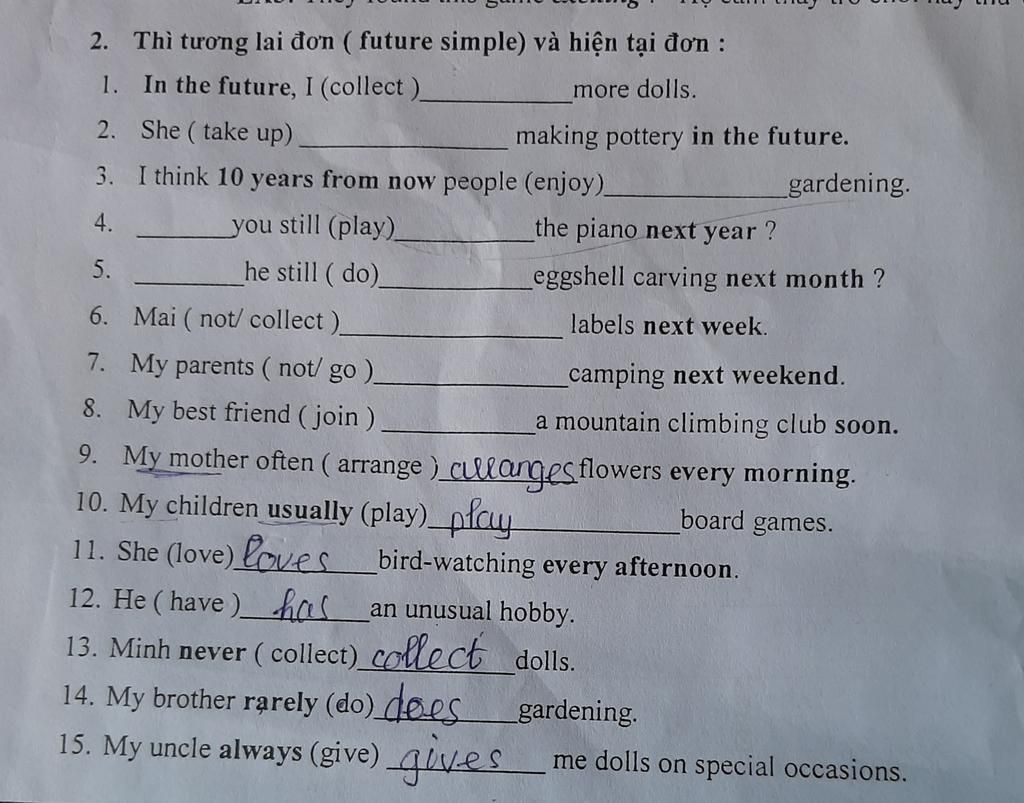 2. Thì tương lai đơn ( future simple) và hiện tại đơn :
1. In the future, I (collect )____________more dolls.
2. She ( take up)________________ making pottery in the future.
3. I think 10 years from now people (enjoy)______________gardening.
4. _______you still (play)___________the piano next year ?
5. ________he still ( do)____________eggshell carving next month ?
6. Mai ( not/ collect )_________________ labels next week.
7. My parents ( not/ go )_______________camping next weekend.
8. My best friend ( join ) ____________a mountain climbing club soon.
9. My mother often ( arrange ) arranges flowers every morning.
10. My children usually (play) play board games.
11. She (love) loves bird-watching every afternoon.
12. He ( have ) has an unusual hobby.
13. Minh never ( collect) collect dolls.
14. My brother rarely (do) does gardening.
15. My uncle always (give) gives me dolls on special occasions.